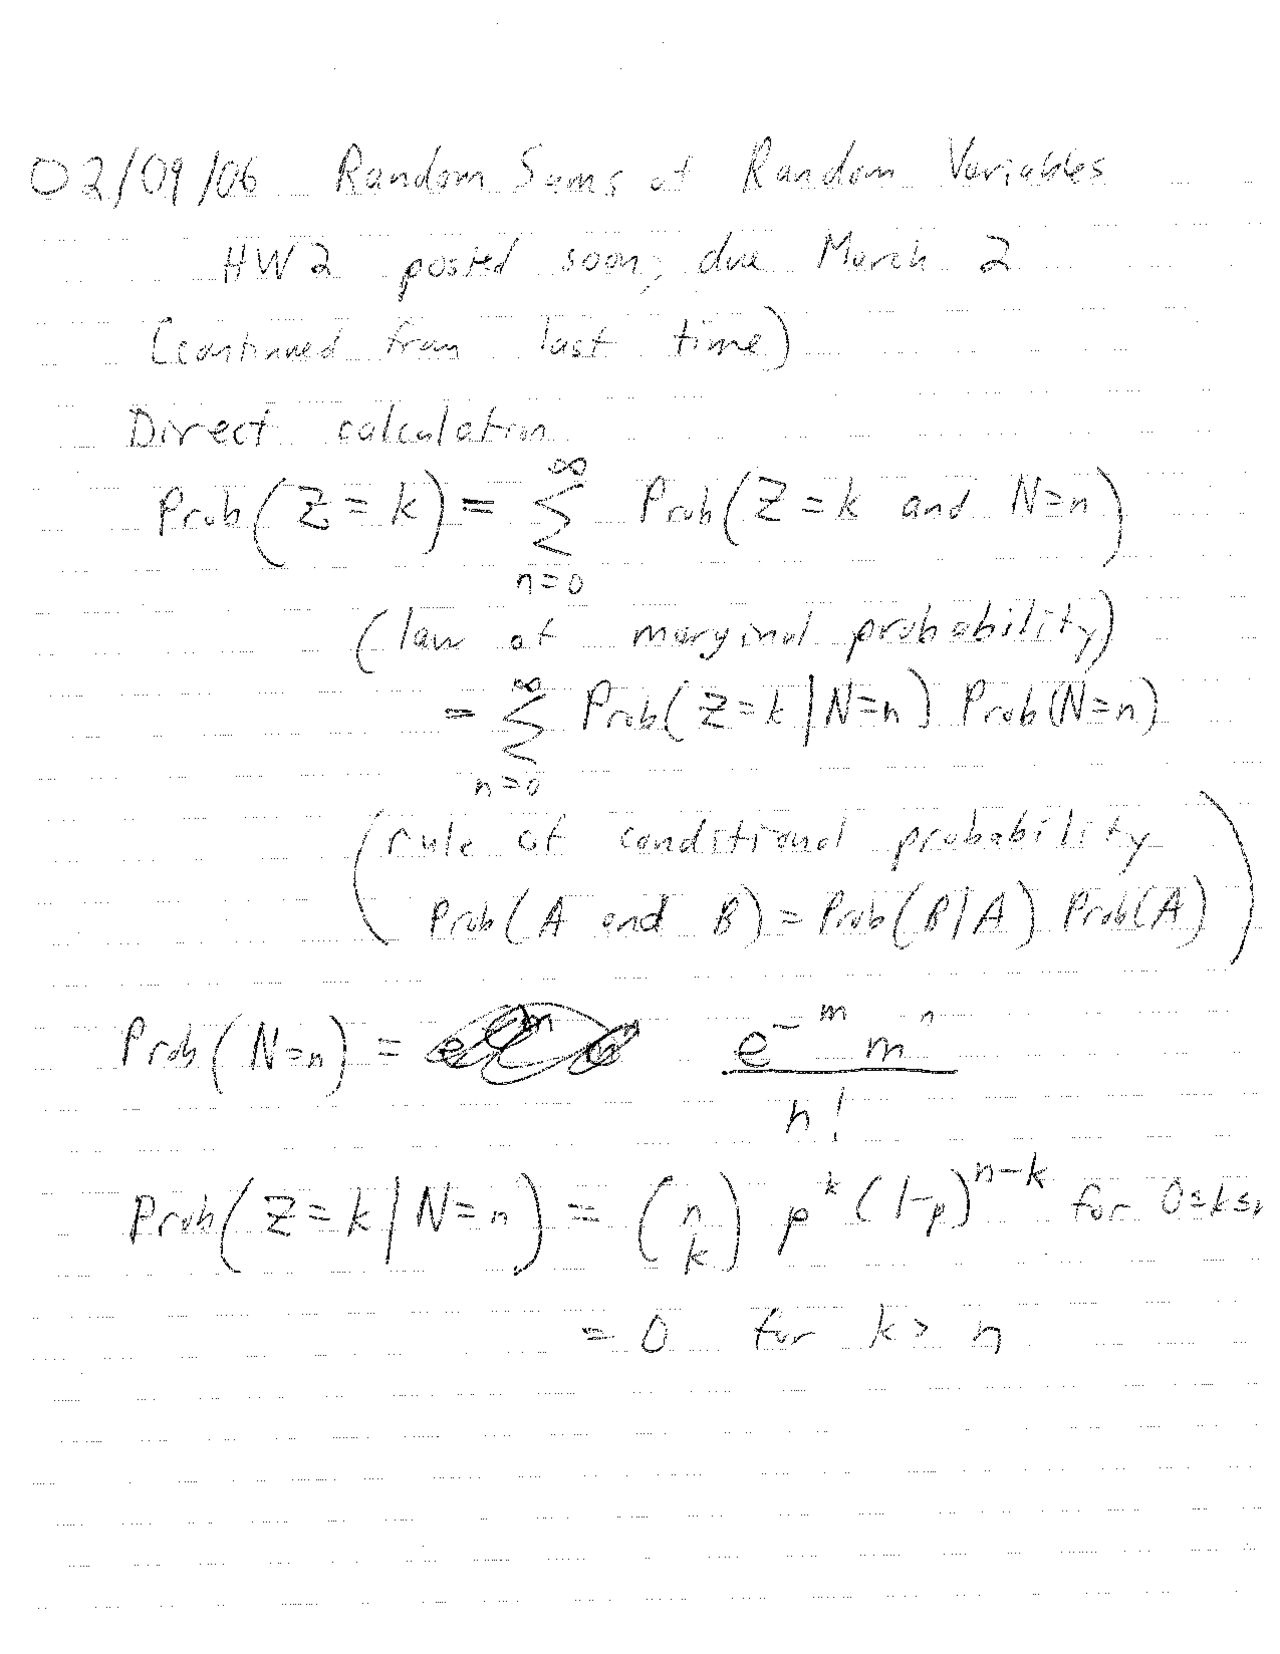 02/09/06 Random Sums of Random Variables
HW2 posted soon, due March 2
(continued from last time)
Direct calculation
Prob(Z = k) = ∑_{n=0}^{∞} Prob(Z = k and N = n)
(law of marginal probability)
= ∑_{n=0}^{∞} Prob(Z = k | N = n) Prob(N = n)
(rule of conditional probability
Prob(A and B) = Prob(B | A) Prob(A))
Prob(N = n) = e^{-m} m^n / n!
Prob(Z = k | N = n) = (n k) p^k (1-p)^{n-k} for 0 ≤ k ≤ n
= 0 for k > n